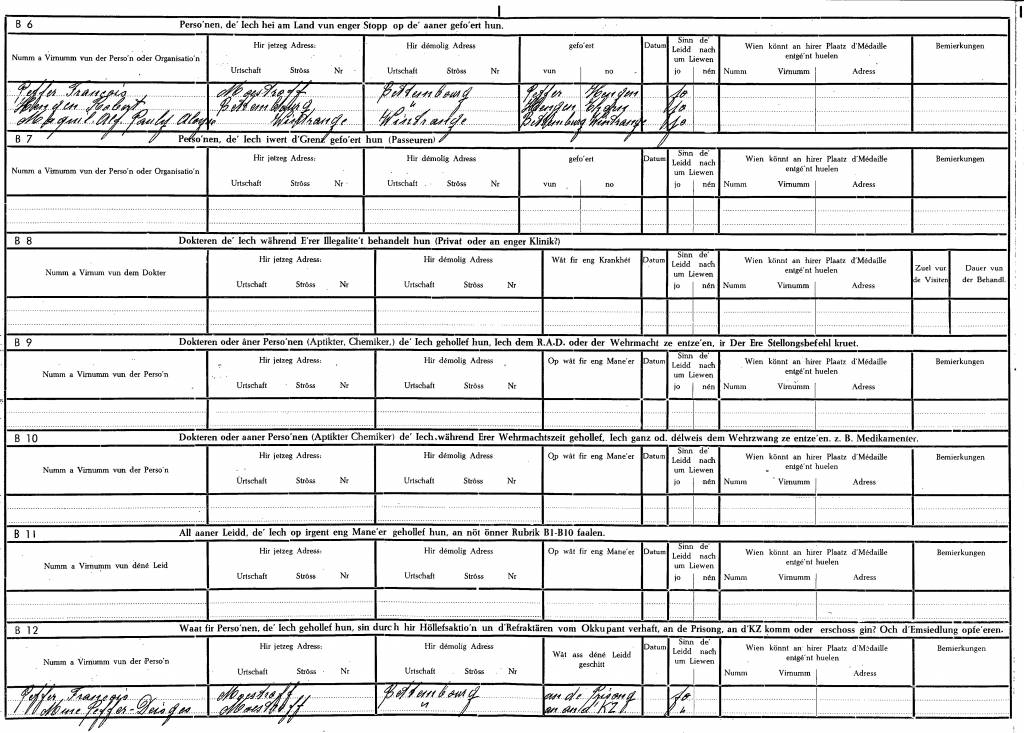 B 6 Perso'nen, de' Iech hei am Land vun enger Stopp op de' aaner gefo'ert hun.
Numm a Virnumm vun der Perso'n oder Organisatio'n Hir jetzeg Adress: Hir démolig Adress gefo'ert Datum Sinn de' Leidd nach um Liewen Wien könnt an hirer Plaatz d'Médaille entgé'nt huelen Bemierkungen
Urtschaft Ströss Nr Urtschaft Ströss Nr vun no jo nén Numm Virnumm Adress
Peffer François Moestroff Bettembourg Peffer Hengen jo
Hengen Robert Bettembourg " Hengen jo
Alf. Pauly Wintrange Wintrange Bettembourg Wintrange jo
B 7 Perso'nen, de' Iech iwert d'Grenz gefo'ert hun (Passeuren)
Numm a Virnumm vun der Perso'n oder Organisatio'n Hir jetzeg Adress: Hir démolig Adress gefo'ert Datum Sinn de' Leidd nach um Liewen Wien könnt an hirer Plaatz d'Médaille entgé'nt huelen Bemierkungen
Urtschaft Ströss Nr Urtschaft Ströss Nr vun no jo nén Numm Virnumm Adress
B 8 Dokteren de' Iech während E'rer Illegalite't behandelt hun (Privat oder an enger Klinik?)
Numm a Virnum vun dem Dokter Hir jetzeg Adress: Hir démolig Adress Wât fir eng Krankhét Datum Sinn de' Leidd nach um Liewen Wien könnt an hirer Plaatz d'Médaille entgé'nt huelen Zuel vun de Visiten Dauer vun der Behandl.
Urtschaft Ströss Nr Urtschaft Ströss Nr jo nén Numm Virnumm Adress
B 9 Dokteren oder âner Perso'nen (Aptikter, Chemiker,) de' Iech gehollef hun, Iech dem R.A.D. oder der Wehrmacht ze entze'en, ir Der Ere Stellongsbefehl kruet.
Numm a Virnumm vun der Perso'n Hir jetzeg Adress: Hir démolig Adress Op wât fir eng Mane'er Datum Sinn de' Leidd nach um Liewen Wien könnt an hirer Plaatz d'Médaille entgé'nt huelen Bemierkungen
Urtschaft Ströss Nr Urtschaft Ströss Nr jo nén Numm Virnumm Adress
B 10 Dokteren oder aaner Perso'nen (Aptikter Chemiker) de' Iech während Erer Wehrmachtszeit gehollef, Iech ganz od. délweis dem Wehrzwang ze entze'en. z. B. Medikamenter.
Numm a Virnumm vun der Perso'n Hir jetzeg Adress: Hir démolig Adress Op wât fir eng Mane'er Datum Sinn de' Leidd nach um Liewen Wien könnt an hirer Plaatz d'Médaille entgé'nt huelen Bemierkungen
Urtschaft Ströss Nr Urtschaft Ströss Nr jo nén Numm Virnumm Adress
B 11 All aaner Leidd, de' Iech op irgent eng Mane'er gehollef hun, an nöt önner Rubrik B1-B10 faalen.
Numm a Virnumm vun déné Leid Hir jetzeg Adress: Hir démolig Adress Op wât fir eng Mane'er Datum Sinn de' Leidd nach um Liewen Wien könnt an hirer Plaatz d'Médaille entgé'nt huelen Bemierkungen
Urtschaft Ströss Nr Urtschaft Ströss Nr jo nén Numm Virnumm Adress
B 12 Waat fir Perso'nen, de' Iech gehollef hun, sin durch hir Höllefsaktio'n un d'Refraktären vom Okkupant verhaft, an de Prisong, an d'KZ komm oder erschoss gin? Och d'Emsiedlung opfe'eren.
Numm a Virnumm vun der Perso'n Hir jetzeg Adress: Hir démolig Adress Wât ass déné Leidd geschitt Datum Sinn de' Leidd nach um Liewen Wien könnt an hirer Plaatz d'Médaille entgé'nt huelen Bemierkungen
Urtschaft Ströss Nr Urtschaft Ströss Nr jo nén Numm Virnumm Adress
Peffer François Moestroff Bettembourg an de Prisong jo
Mme Peffer- Moestroff " an an d'KZ. "